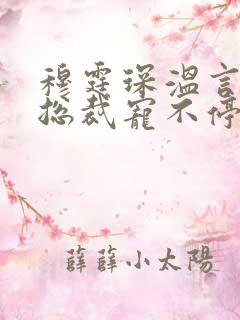 穆霆琛溫言
总裁寵不停
薛薛小太陽